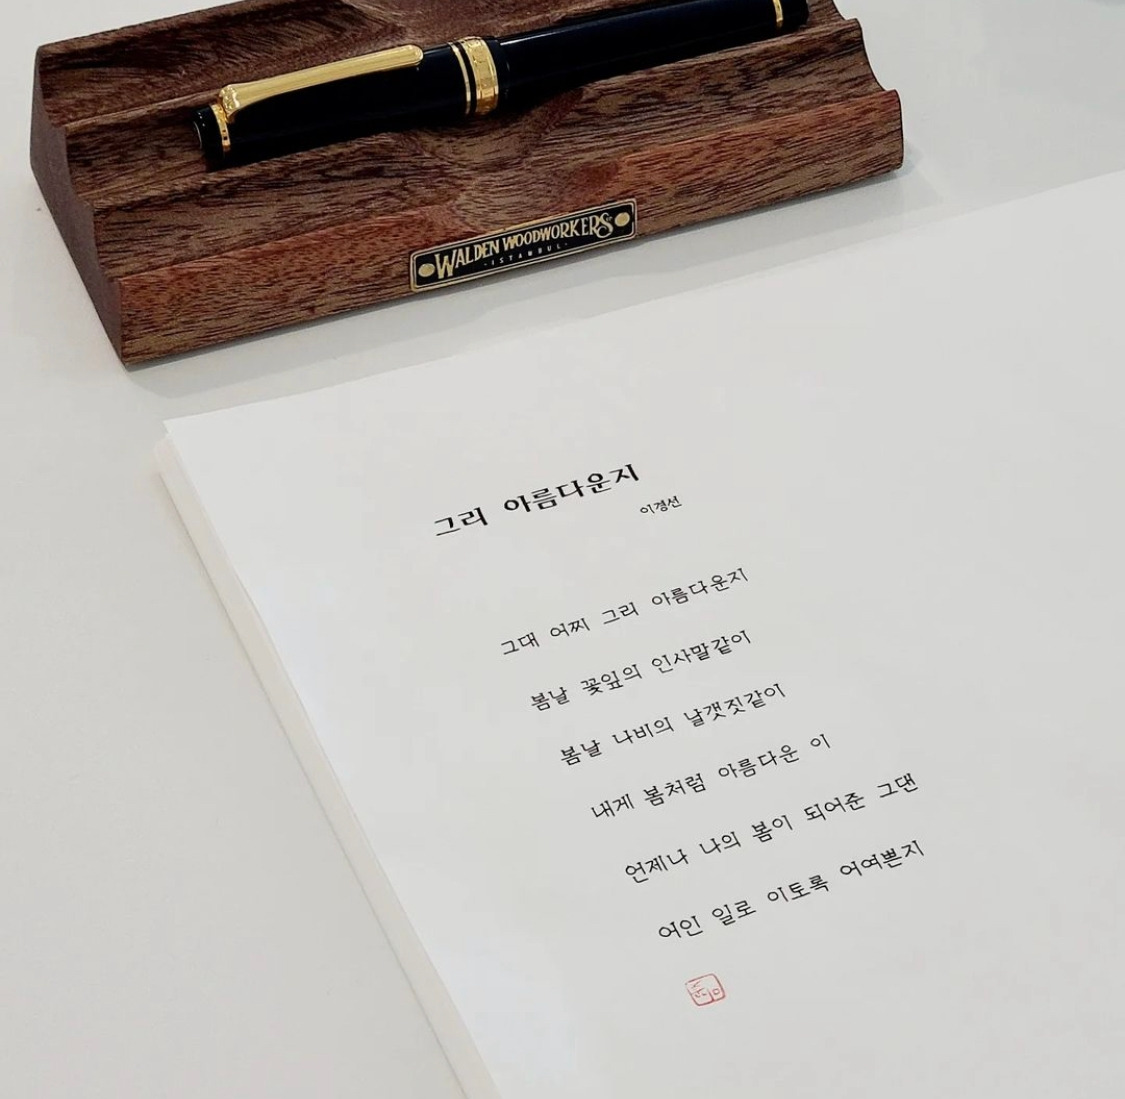 WALDEN WOODWORKERS
·ISTANBUL·
그리 아름다운지
이경선
그대 어찌 그리 아름다운지
봄날 꽃잎의 인사말같이
봄날 나비의 날갯짓같이
내게 봄처럼 아름다운 이
언제나 나의 봄이 되어준 그댄
어인 일로 이토록 어여쁜지